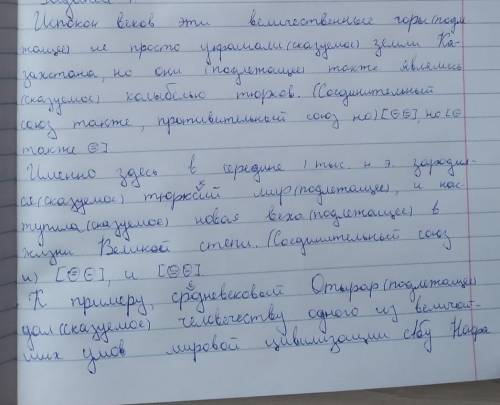 Испокон веков эти величественные горы(подле
жащее) не просто украшали(сказуемое) земли Ка-
захстана, но они (подлежащее) также являлись
(сказуемое) колыбелью тюрков. (Соединительный
союз также, противительный союз но) [⊖⊖], но [⊖
также ⊖]
Именно здесь в середине 1 тыс. н. э. зародил-
ся(сказуемое) тюркский мир(подлежащее), и нас-
тупила(сказуемое) новая веха(подлежащее) в
жизни Великой степи. (Соединительный союз
и) [⊖⊖], и [⊖⊖]
К примеру, средневековый Отырар(подлежащее)
дал(сказуемое) человечеству одного из величай-
ших умов мировой цивилизации Абу Насра